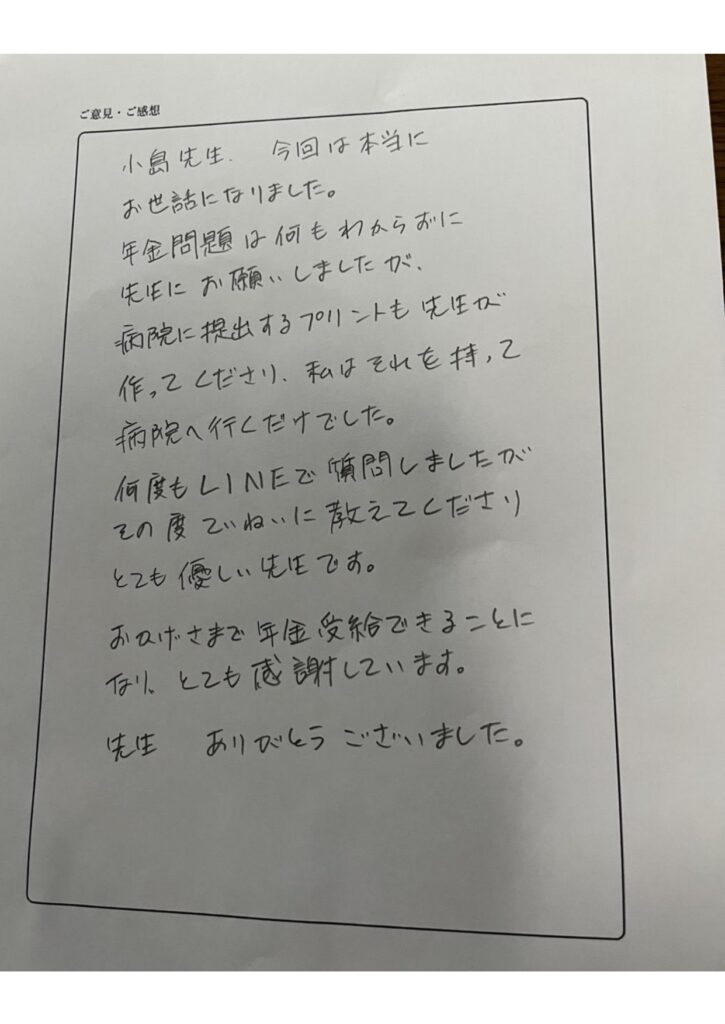 ご意見・ご感想
小島先生、今回は本当に
お世話になりました。
年金問題は何もわからずに
先生にお願いしましたが、
病院に提出するプリントも先生が
作ってくださり、私はそれを持って
病院へ行くだけでした。
何度もLINEで質問しましたが
その度ていねいに教えてくださり
とても優しい先生です。
おかげさまで年金受給できることに
なり、とても感謝しています。
先生 ありがとうございました。